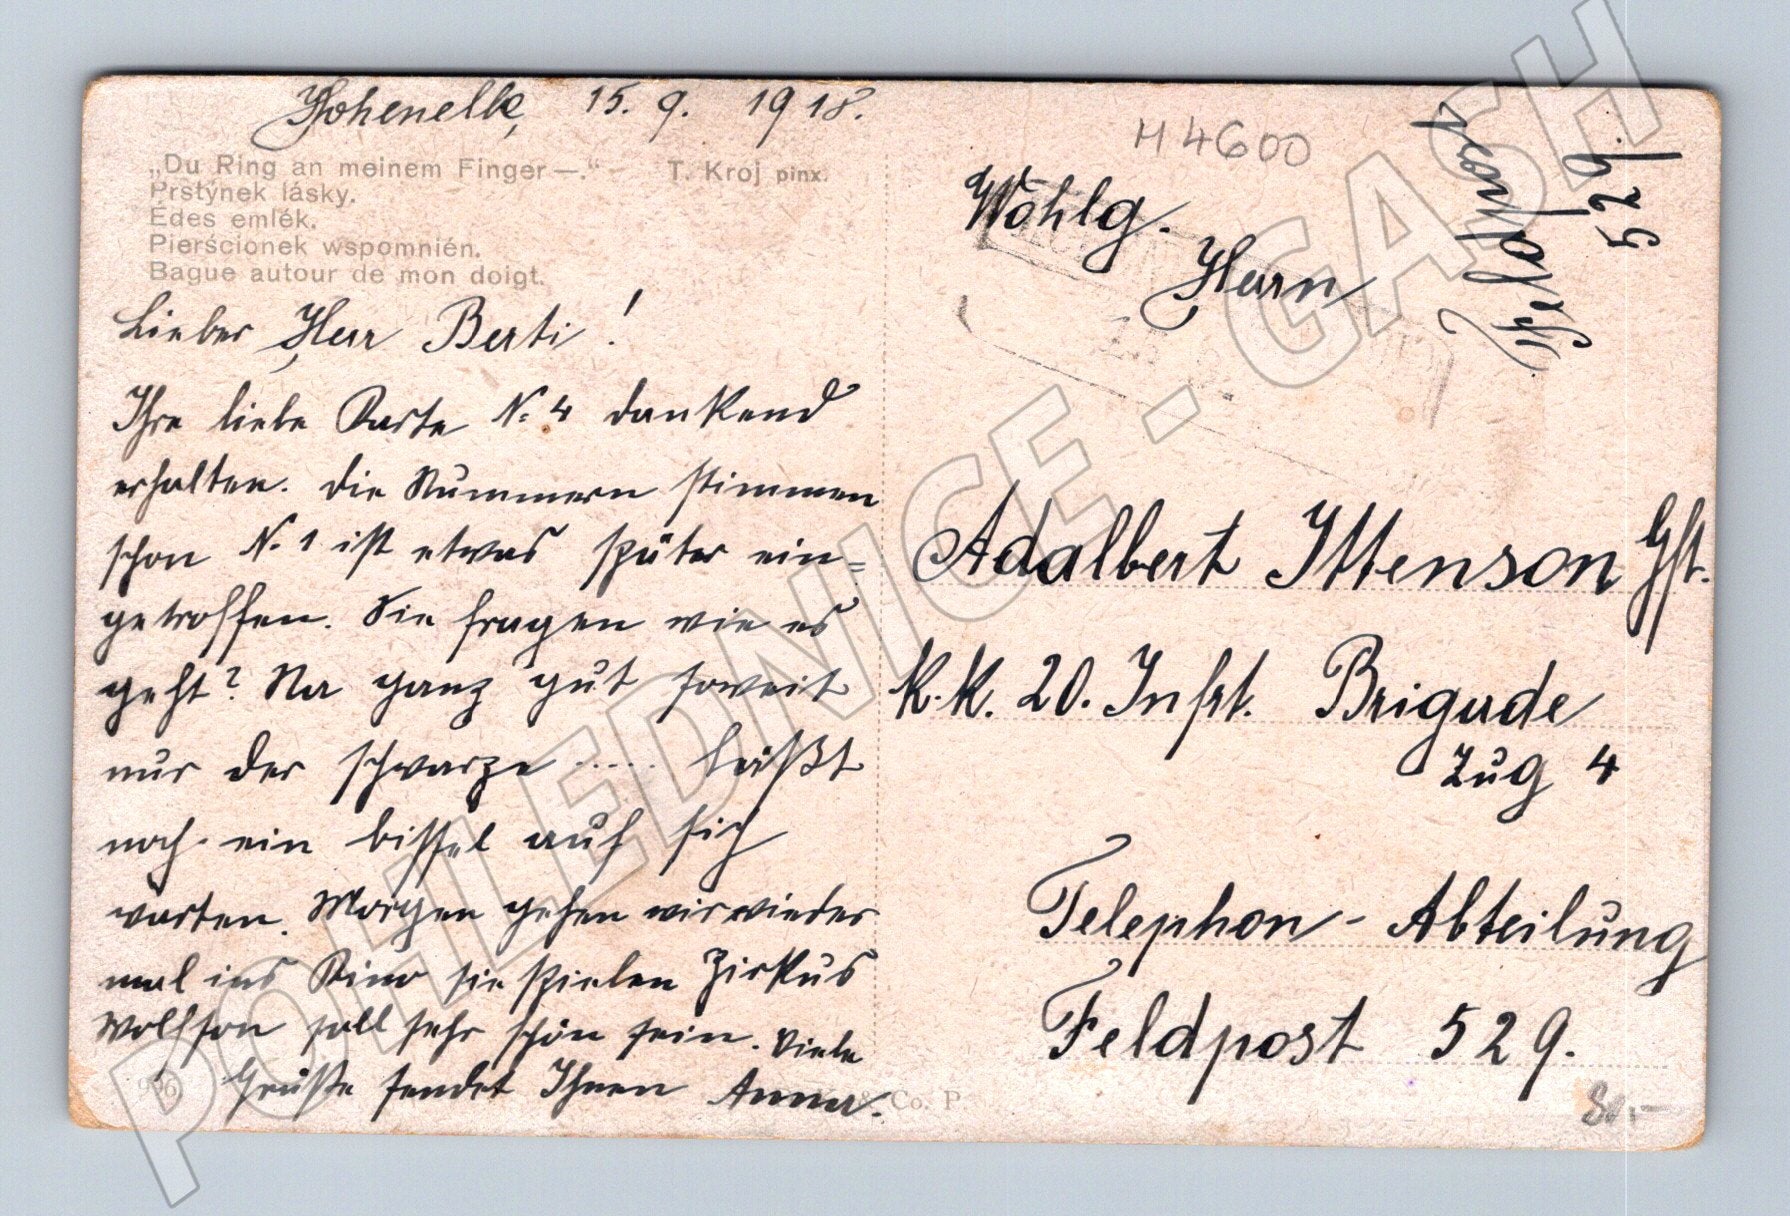 Hohenelbe, 15. 9. 1918.
„Du Ring an meinem Finger—.“ T. Kroj pinx.
Prstýnek lásky.
Édes emlék.
Pierścionek wspomnién.
Bague autour de mon doigt.
Lieber Herr Berti!
Ihre liebe Karte N. 4 dankend
erhalten. Die Nummern stimmen
schon N. 1 ist etwas später ein=
getroffen. Sie fragen wie es
geht? Na ganz gut soweit
nur der schwarze ..... läßt
noch ein bissel auf sich
warten. Morgen gehen wir wieder
mal ins Kino sie spielen Zirkus
Wolfson soll sehr schön sein. Viele
Grüße sendet Ihnen Anna.
H 4600
Wohlg.
Herrn
Adalbert Ittenson Gft.
k.k. 20. Inft. Brigade
Zug 4
Telephon-Abteilung
Feldpost 529.
Feldpost
529.
& Co. P.
POHLEDNICE - GASH